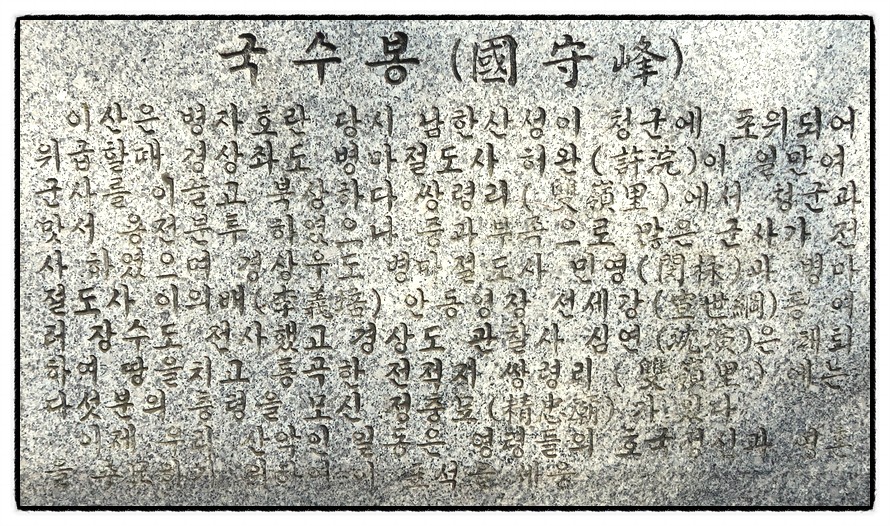 국수봉(國守峰)
이산은 병자호란 당시 남한산성이 청군에 포위되어
위급할때 경상좌도 병마절도사 허완(許浣)이 일만여
군사를 이끌고 북상하다 쌍령리(雙嶺里)에서 청군과
맞서 용전분투 하였으나 중과부족으로 많은 군사가 전
사 하였으며 경상우도 병마절도사 민영(閔栐)과 병마
절도사 이의배(李義培) 안동영장 선세강(宣世綱)등 여
러 장수도 전사했고 경상도 관찰사 심연(沈演)은 패퇴
하여 땅을치고 통곡한 전적재 쌍령리(雙嶺里)에는
다섯분의 통령을 모신 정충묘(精忠廟)가 있다
이제 우리 산악인 일동은 영령들의 호국정신과 명복
을 추모하며 이 표석을 세움